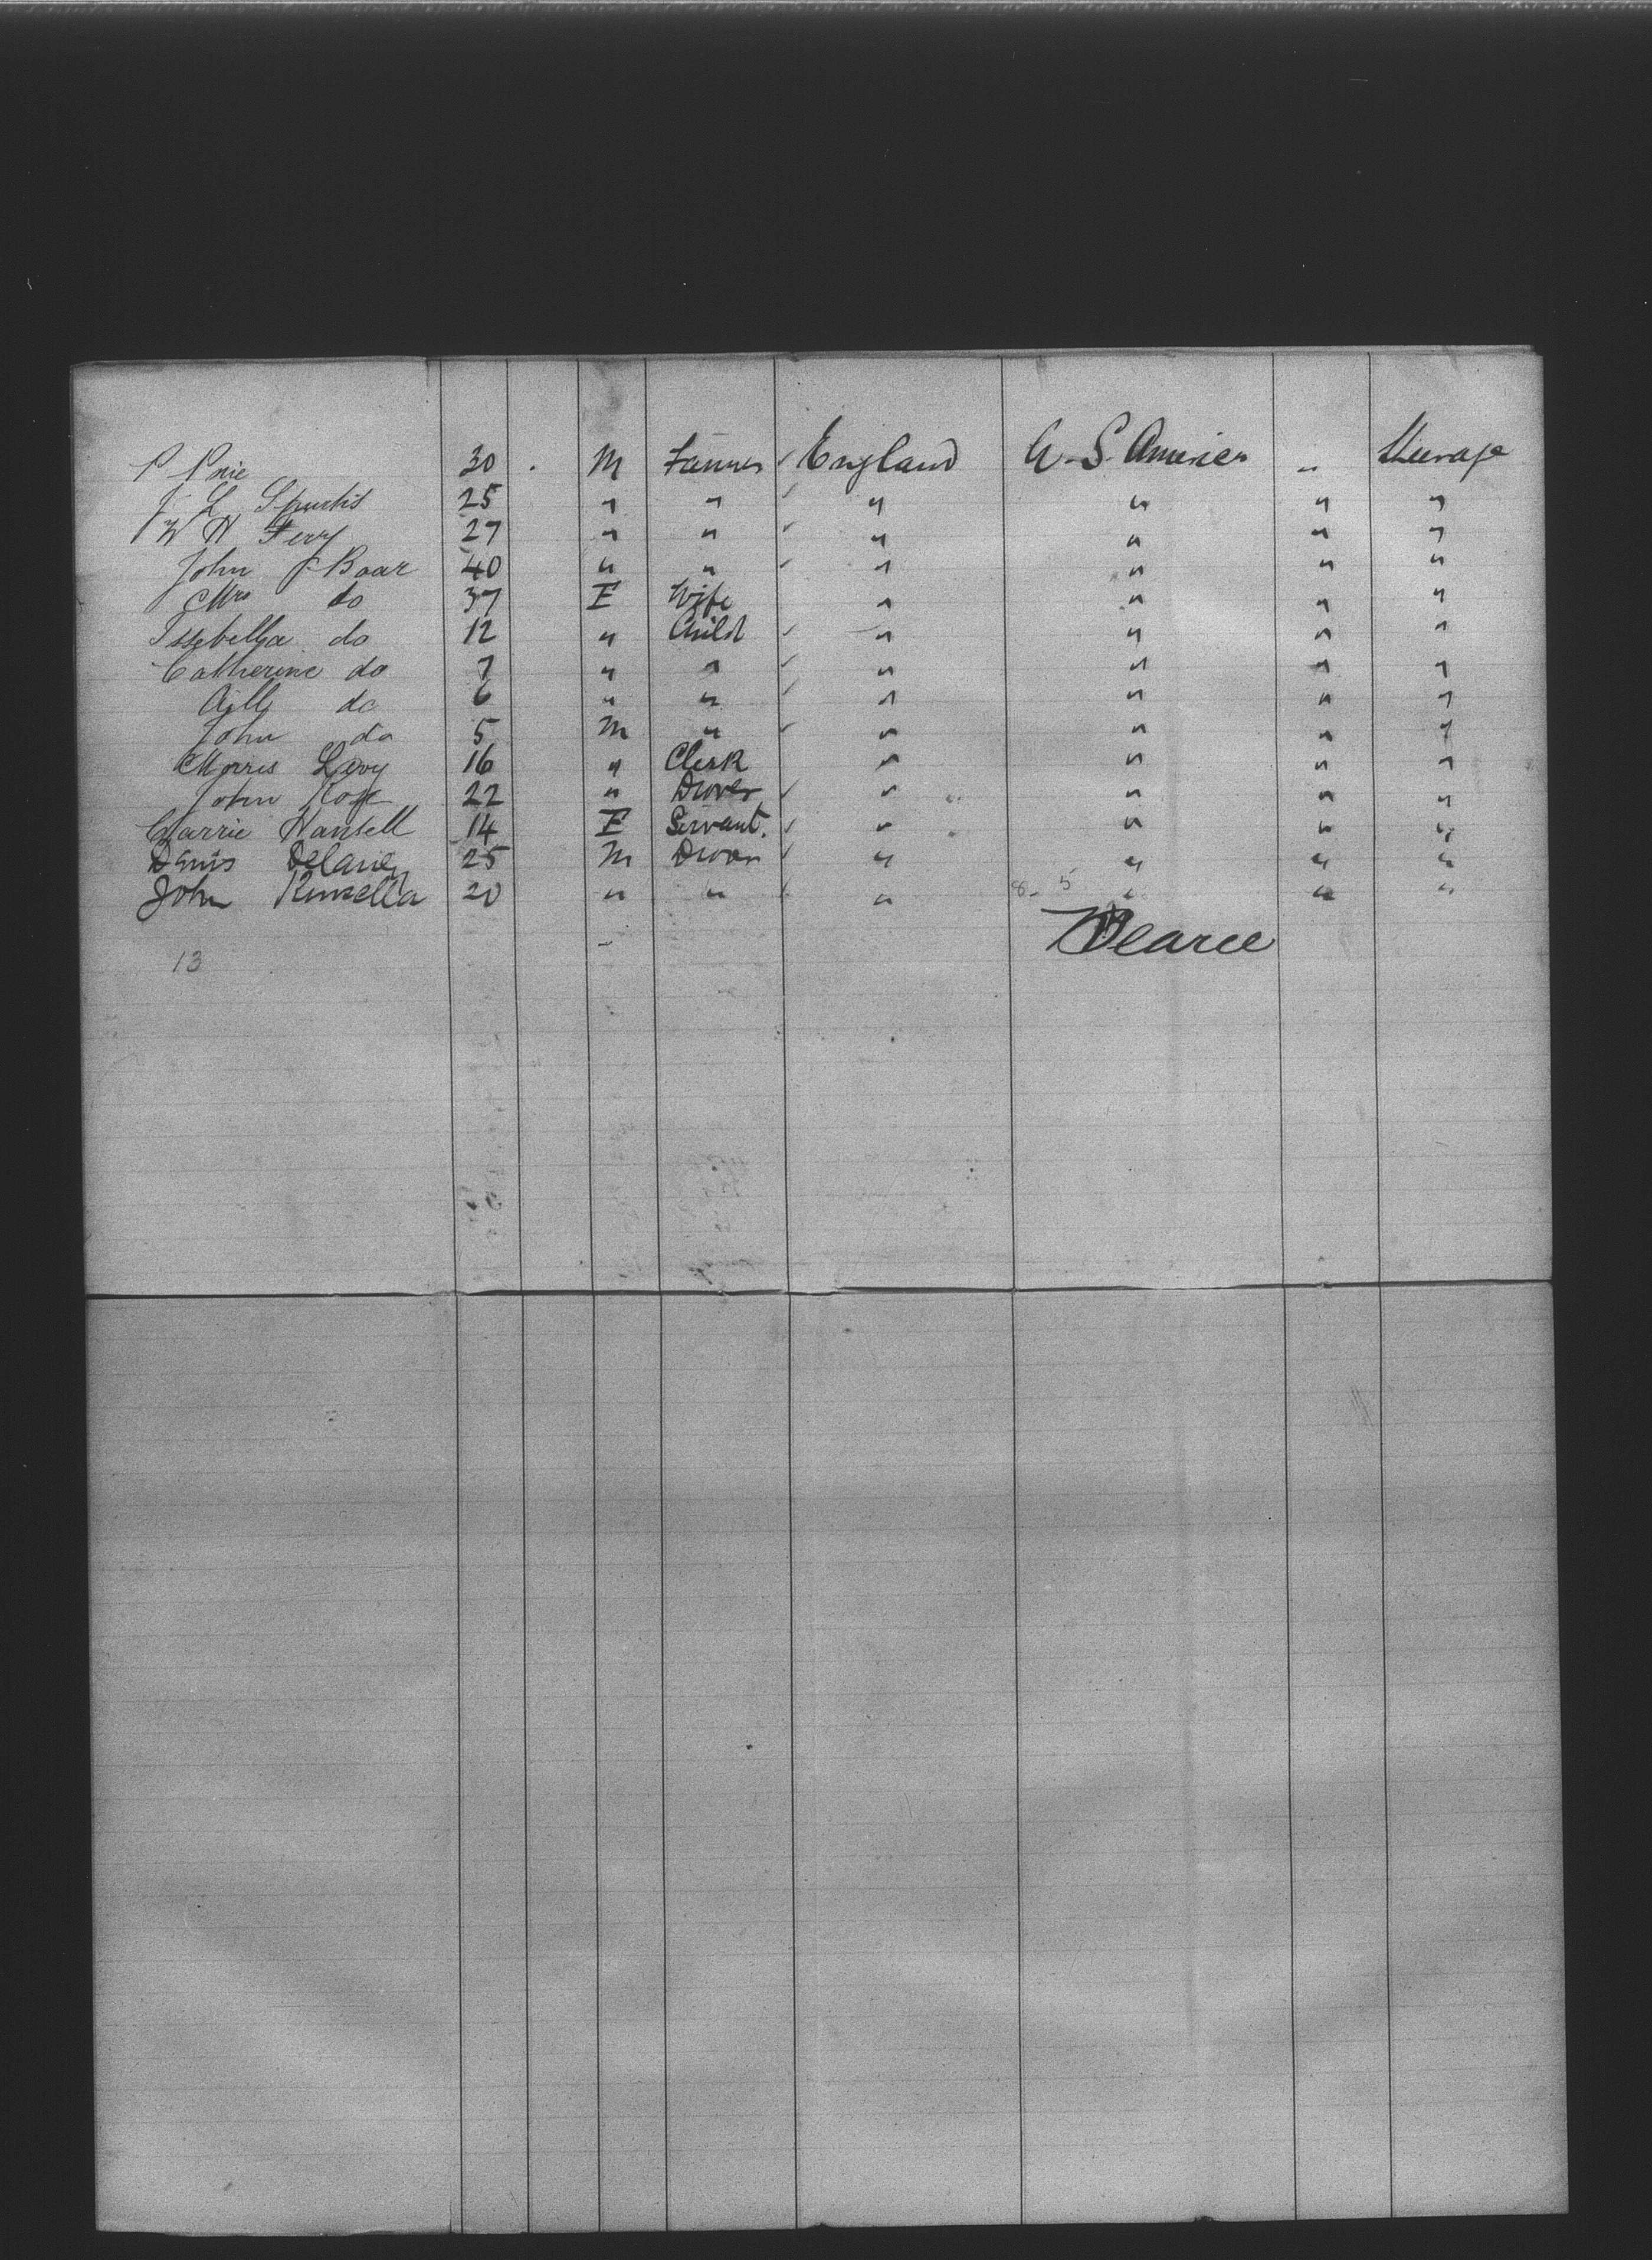 P Price 30 . M Farmer England U. S. America " Steerage
J L 25 " " " " " "
W H Ferry 27 " " " " " "
John J Boar 40 " " " " " "
Mrs do 37 F Wife " " " "
Issebella do 12 " Child " " " "
Catherine do 7 " " " " " "
do 6 " " " " " "
John do 5 M " " " " "
Morris Levy 16 " Clerk " " " "
John Rose 22 " Drover " " " "
Carrie Hansell 14 F Servant. " " " "
Denis Delaney 25 M Drover " " " "
John Kinsella 20 " " " 8-5 " " "
Pearce
13